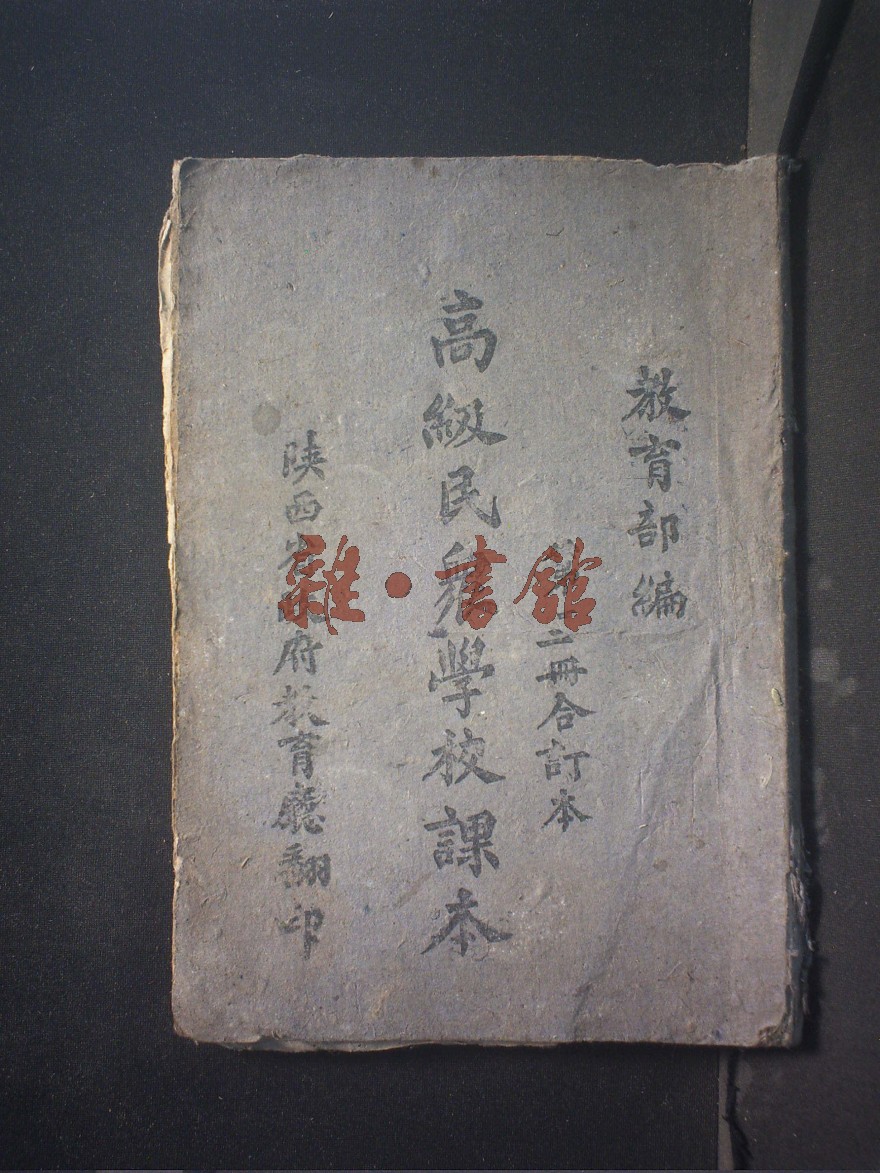 教育部編
二冊合訂本
高級民眾學校課本
陝西省政府教育廳翻印
雜·書館